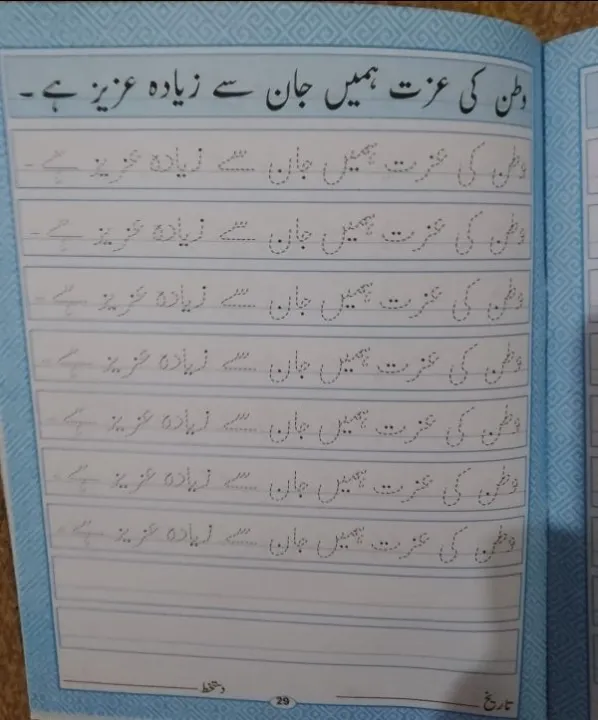 وطن کی عزت ہمیں جان سے زیادہ عزیز ہے۔
وطن کی عزت ہمیں جان سے زیادہ عزیز ہے۔
وطن کی عزت ہمیں جان سے زیادہ عزیز ہے۔
وطن کی عزت ہمیں جان سے زیادہ عزیز ہے۔
وطن کی عزت ہمیں جان سے زیادہ عزیز ہے۔
وطن کی عزت ہمیں جان سے زیادہ عزیز ہے۔
وطن کی عزت ہمیں جان سے زیادہ عزیز ہے۔
وطن کی عزت ہمیں جان سے زیادہ عزیز ہے۔
تاریخ ــــــــ دستخط ــــــــ
29